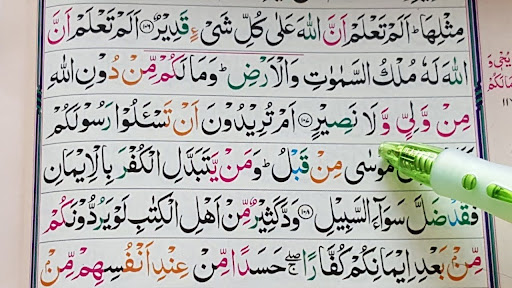 مِثْلِهَا ؕ اَلَمْ تَعْلَمْ اَنَّ اللهَ عَلٰى كُلِّ شَىْءٍ قَدِيْرٌ ﴿۱۰۶﴾ اَلَمْ تَعْلَمْ اَنَّ
اللهَ لَهٗ مُلْكُ السَّمٰوٰتِ وَالْاَرْضِ ؕ وَمَا لَكُمْ مِّنْ دُوْنِ اللهِ
مِنْ وَّلِىٍّ وَّلَا نَصِيْرٍ ﴿۱۰۷﴾ اَمْ تُرِيْدُوْنَ اَنْ تَسْـَٔلُوْا رَسُوْلَكُمْ
مُوْسٰى مِنْ قَبْلُ ؕ وَمَنْ يَّتَبَدَّلِ الْكُفْرَ بِالْاِيْمَانِ
فَقَدْ ضَلَّ سَوَآءَ السَّبِيْلِ ﴿۱۰۸﴾ وَدَّ كَثِيْرٌ مِّنْ اَهْلِ الْكِتٰبِ لَوْ يَرُدُّوْنَكُمْ
مِّنْۢ بَعْدِ اِيْمَانِكُمْ كُفَّارًا ۖۚ حَسَدًا مِّنْ عِنْدِ اَنْفُسِهِمْ مِّنْۢ